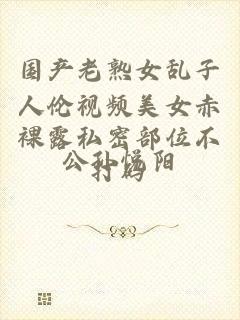 国产老熟女乱子
人伦视频美女赤
裸露私密部位不